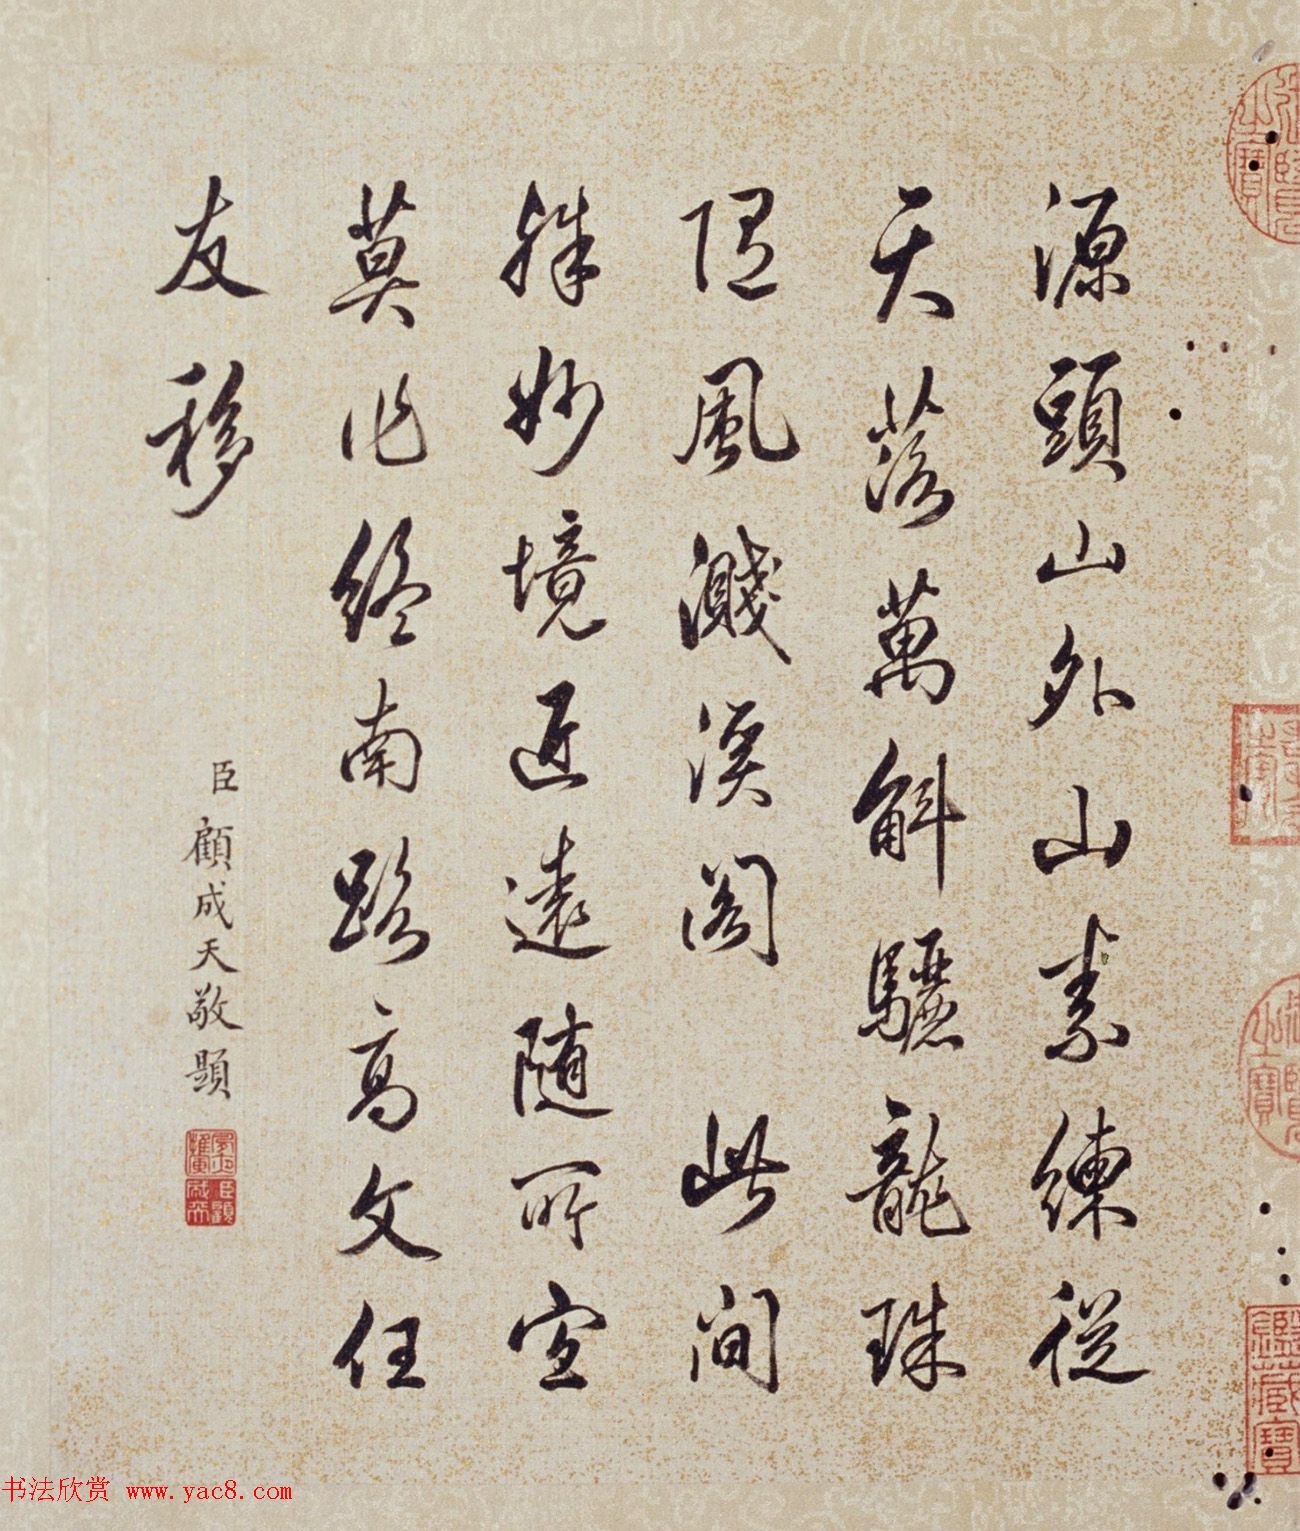 源頭山外山素練從
天落萬斛驪龍珠
隨風濺溪閣 此間
殊妙境近遠隨所宜
莫作終南路高文任
友移
臣顧成天敬題
鑑藏寶
书法欣赏 www.yac8.com